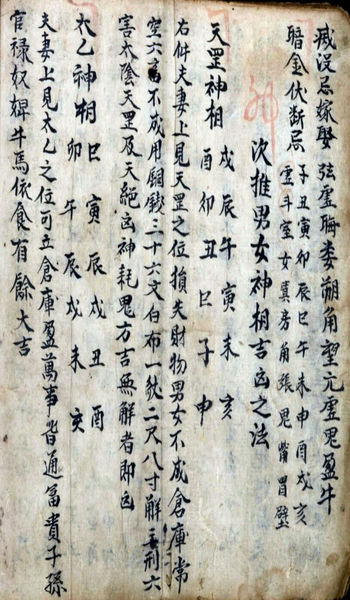 没忌嫁娶 弦虚晦娄朔角望亢虚鬼盈牛
暗金伏断忌 子丑寅卯辰巳午未申酉戌亥
虚斗室女箕房角張鬼觜胃壁
次推男女神相吉凶之法
天罡神相 戌辰午寅未亥
酉卯丑巳子申
右件夫妻上見天罡之位損失財物男女不成倉庫常
空六畜不成用銅錢三十六文白布一疋二尺八寸解三刑六
害太陰天罡及天絕凶神耗鬼方吉無解者即凶
太乙神相 巳寅辰戌丑酉
卯午辰戌未亥
夫妻上見太乙之位可立倉庫盈萬事皆通富貴子孫
官禄奴婢牛馬依食有餘大吉